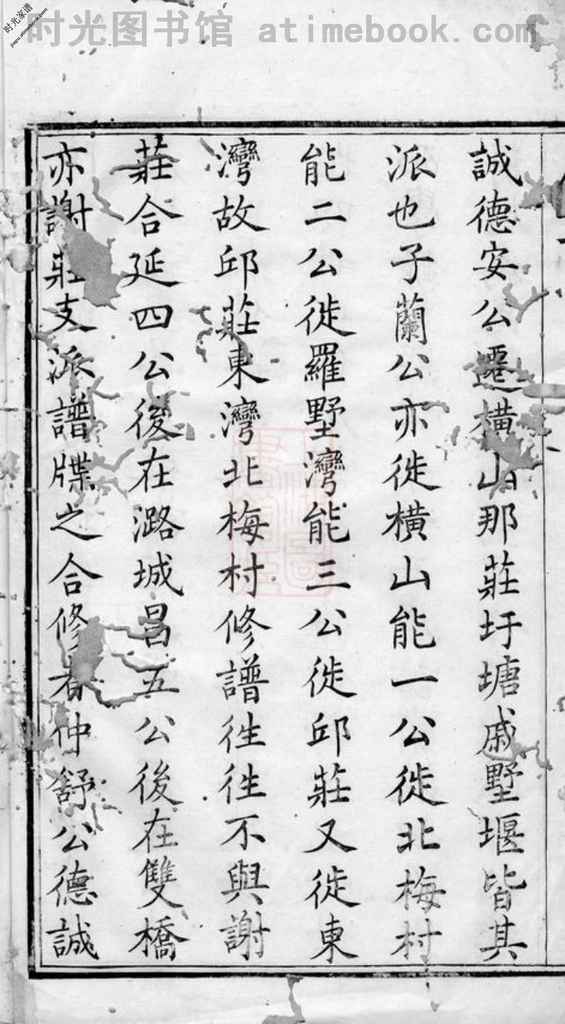 时光图书馆 atimebook.com
时光家谱
誠德安公遷橫山那莊圩塘戚墅堰皆其
派也子蘭公亦徙橫山能一公徙北梅村
能二公徙羅墅灣能三公徙邱莊又徙東
灣故邱莊東灣北梅村修譜往往不與謝
莊合延四公後在潞城昌五公後在雙橋
亦謝莊支派譜牒之合修者仲舒公德誠